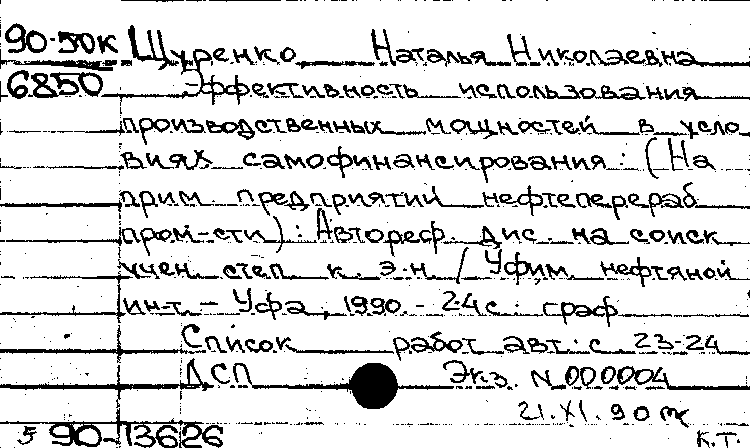 90-50к Щуренко, Наталья Николаевна
6850 Эффективность использования
производственных мощностей в усло
виях самофинансирования: (На
прим. предприятий нефтеперераб
пром-сти): Автореф. дис. на соиск
учен. степ. к. э. н. / Уфим. нефтяной
ин-т. - Уфа, 1990. - 24с.: граф
Список работ авт.: с. 23-24
ДСП Экз. N 000004
21.XI.90
5 90-13626 К.Т.